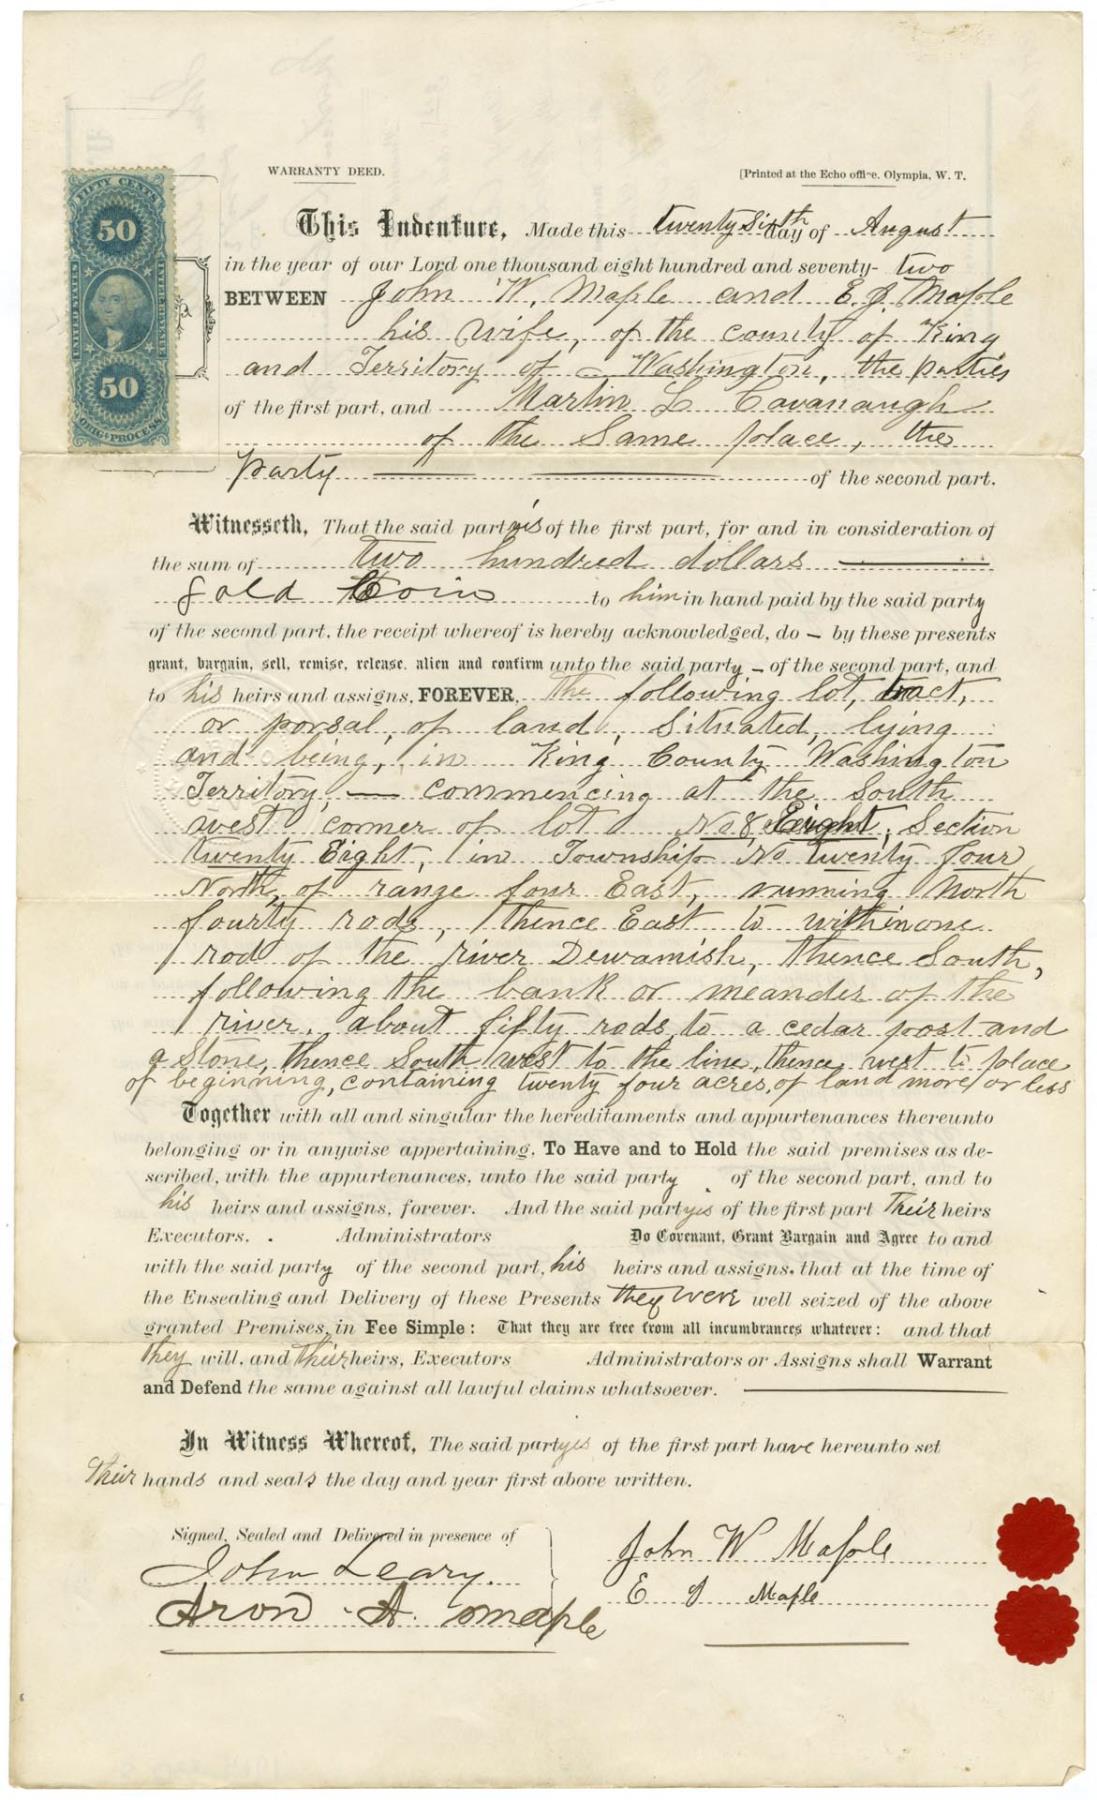 WARRANTY DEED.
[Printed at the Echo office, Olympia, W. T.
FIFTY CENTS
50
UNITED STATES
INTER. REVENUE
50
ORIG. PROCESS
This Indenture, Made this twenty Sixth day of August
in the year of our Lord one thousand eight hundred and seventy- two
BETWEEN John W. Maple and E. J. Maple
his wife, of the county of King
and Territory of Washington, the parties
of the first part, and Martin L Cavanaugh
of the Same place, the
party of the second part.
Witnesseth, That the said partyis of the first part, for and in consideration of
the sum of two hundred dollars
gold Coin to him in hand paid by the said party
of the second part, the receipt whereof is hereby acknowledged, do – by these presents
grant, bargain, sell, remise, release, alien and confirm unto the said party – of the second part, and
to his heirs and assigns, FOREVER, the following lot, tract,
or porsal, of land, Situated, lying
and being, in King County Washington
Territory, — commencing at the South
west corner of lot No 8, Eight, Section
twenty Eight, in Township No twenty four
North, of range four East, running North
fourty rods, thence East to within one
rod of the river Dewamish, thence South,
following the bank or meander of the
river, about fifty rods, to a cedar post and
a Stone, thence South west to the line, thence west to place
of beginning, containing twenty four acres, of land more or less
Together with all and singular the hereditaments and appurtenances thereunto
belonging or in anywise appertaining, To Have and to Hold the said premises as de-
scribed, with the appurtenances, unto the said party of the second part, and to
his heirs and assigns, forever. And the said partyis of the first part Their heirs
Executors, Administrators Do Covenant, Grant Bargain and Agree to and
with the said party of the second part, his heirs and assigns, that at the time of
the Ensealing and Delivery of these Presents they were well seized of the above
granted Premises, in Fee Simple: That they are free from all incumbrances whatever: and that
they will, and their heirs, Executors Administrators or Assigns shall Warrant
and Defend the same against all lawful claims whatsoever.
In Witness Whereof, The said partyis of the first part have hereunto set
Their hands and seals the day and year first above written.
Signed, Sealed and Delivered in presence of
John Leary.
Aron A. Maple
John W Maple
E J Maple